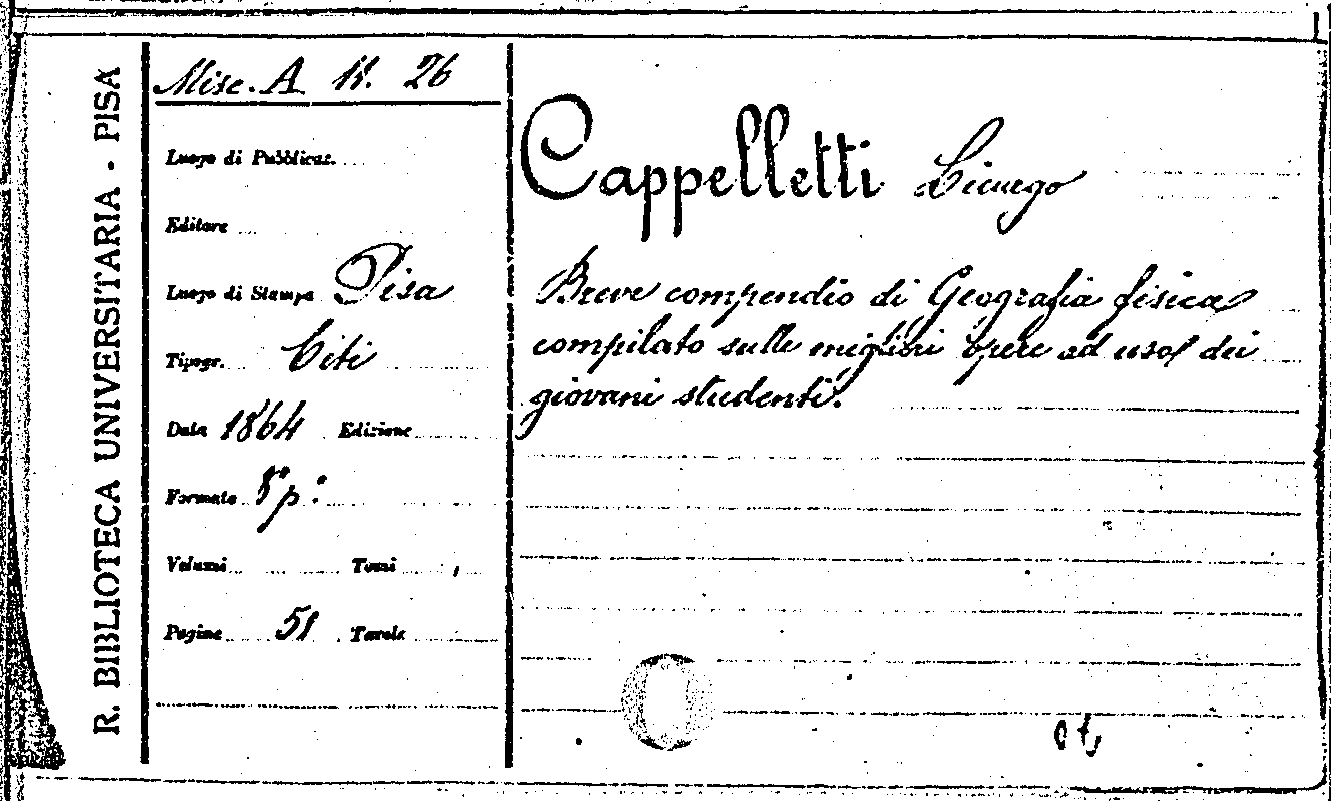 R. BIBLIOTECA UNIVERSITARIA - PISA
Misc. A 11. 26
Luogo di Pubblicaz.
Editore
Luogo di Stampa Pisa
Tipogr. Citi
Data 1864 Edizione
Formato 8° p:
Volumi Tomi
Pagine 51 Tavole
Cappelletti Licurgo
Breve compendio di Geografia fisica
compilato sulle migliori opere ad uso dei
giovani studenti.